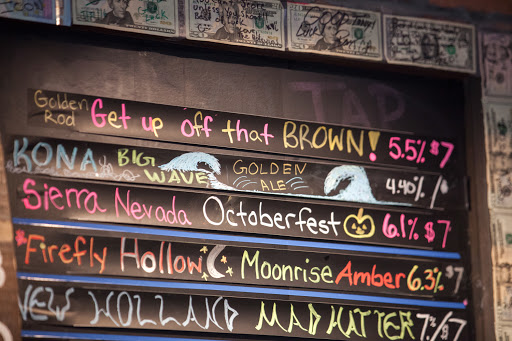 TAP
Golden Rod Get up off that BROWN! 5.5% $7
KONA BIG WAVE GOLDEN ALE 4.40% /
Sierra Nevada Octoberfest 6.1% $7
Firefly Hollow Moonrise Amber 6.3% $7
NEW HOLLAND MAD HATTER 7.%/$7